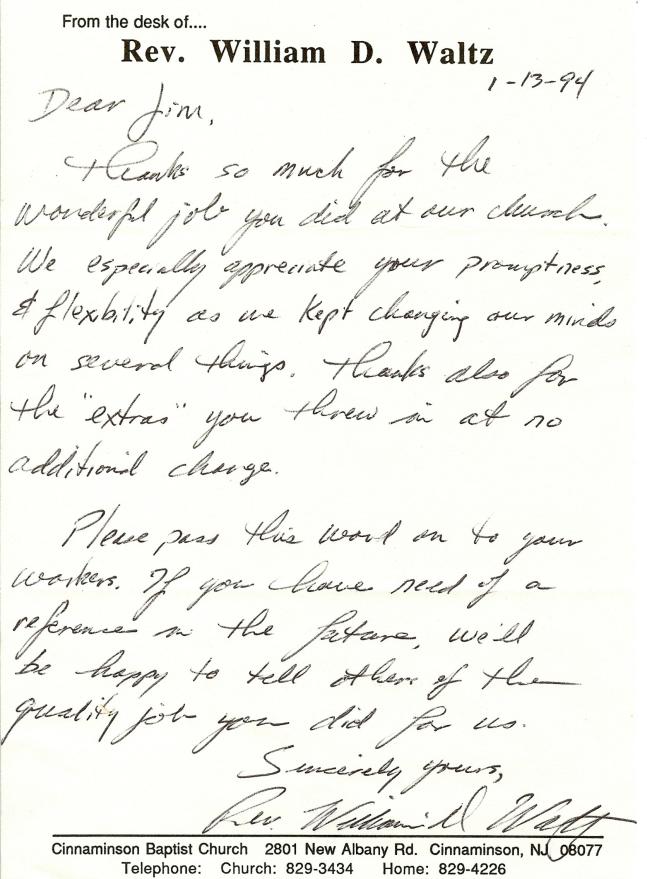 From the desk of....
Rev. William D. Waltz
1-13-94
Dear Jim,
Thanks so much for the
wonderful job you did at our church.
We especially appreciate your promptness,
& flexibility as we kept changing our minds
on several things. Thanks also for
the "extras" you threw in at no
additional charge.
Please pass this word on to your
workers. If you have need of a
reference in the future, we'll
be happy to tell others of the
quality job you did for us.
Sincerely yours,
Rev. William D Waltz
Cinnaminson Baptist Church 2801 New Albany Rd. Cinnaminson, NJ 08077
Telephone: Church: 829-3434 Home: 829-4226